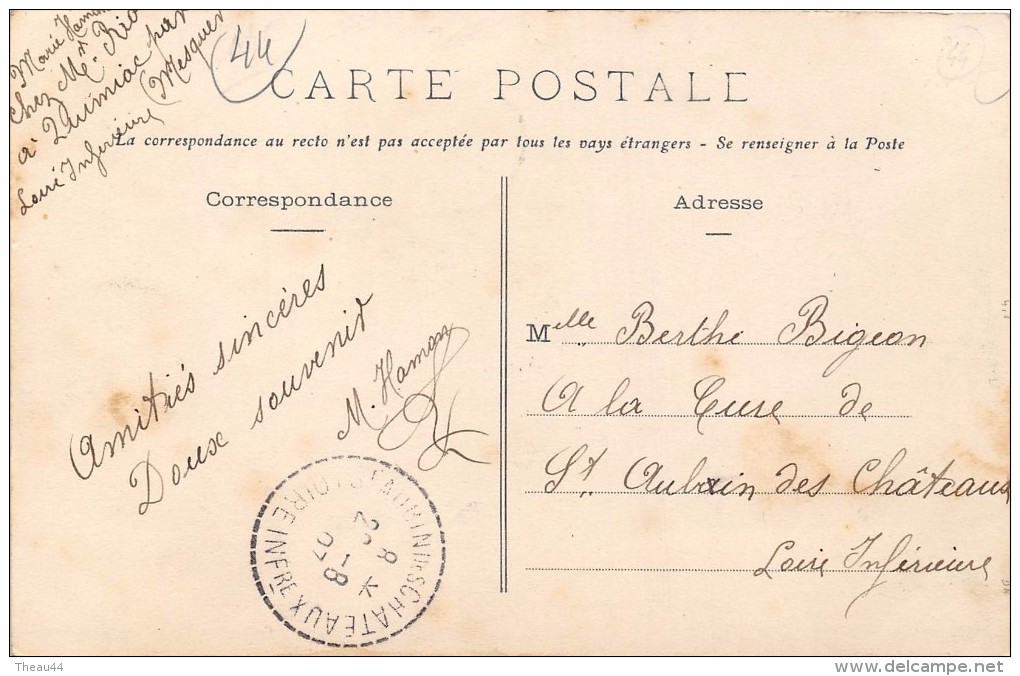 Marie Hamon
chez Mr. Rio
à Quimiac par
(Mesquer
Loire Inférieure
44
44
CARTE POSTALE
La correspondance au recto n'est pas acceptée par tous les pays étrangers - Se renseigner à la Poste
Correspondance
Amitiés sincères
Doux souvenir
M. Hamon
Adresse
Melle Berthe Bigeon
A la Cure de
St. Aubin des Châteaux
Loire Inférieure
ST AUBIN DES CHÂTEAUX
LOIRE INFRE
8
07
Theau44
www.delcampe.net